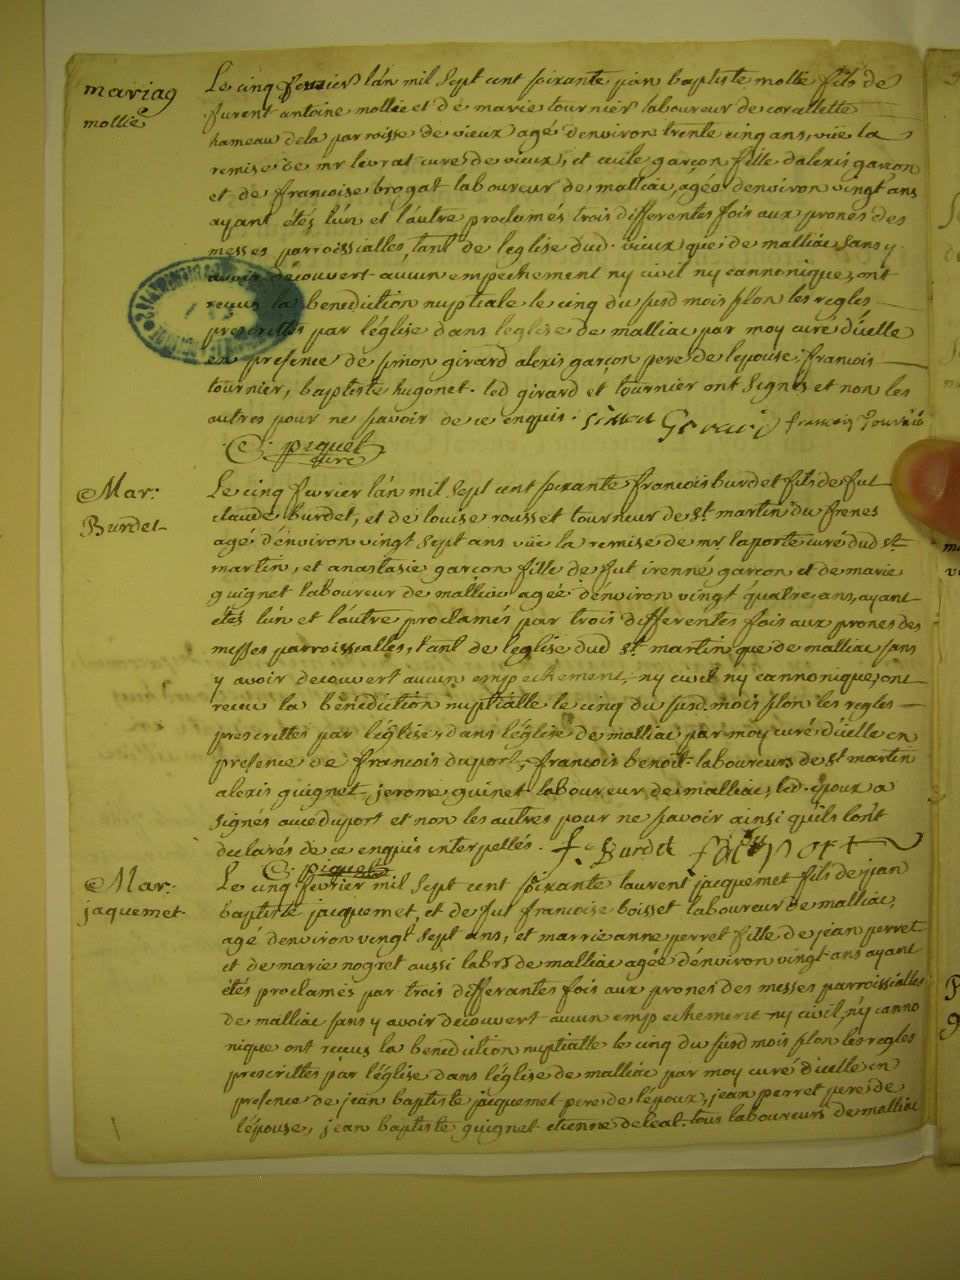 mariag
mollie
Le cinq fevrier lan mil sept cent soixante jean baptiste mollie fils de
furent antoine mollie et de marie tournier laboureur de corcellette
hameau dela parroisse de vieux agé denviron trente cinq ans, vüe la
remise de mr levrat curé de vieux, et cecile garçon fille dalexis garçon
et de francoise brogat laboureur de malliac, agée denviron vingt ans
ayant étés lún et láutre proclamés trois differentes fois aux prones des
messes parroissialles, tant de leglise dud. vieux que de malliac sans y
avoir découvert aucun empechement ny civil ny cannonique, ont
reçus la benediction nuptiale le cinq du susd mois selon les regles
prescrittes par léglise dans leglise de malliac par moy curé dicelle
en presence de simon girard alexis garçon pere de lepouse, francois
tournier, baptiste hugonet. led girard et tournier ont signés et non les
autres pour ne savoir de ce enquis. simon Girard francois Tournié
C. piquet
curé
Mar:
Burdet
Le cinq fevrier lán mil sept cent soixante francois burdet fils de fut
claude burdet, et de louise rousset tourneur de st martin du frenes
agé denviron vingt sept ans vüe la remise de mr laporte curé dud st
martin, et anastasie garçon fille de fut irenné garçon et de marie
guignet laboureur de malliac agée dénviron vingt quatre ans, ayant
étés lún et láutre proclamés par trois differéntes fois aux prones des
messes parroissialles, tant de leglise dud st martin que de malliac sans
y avoir decouvert aucun empechement, ny civil ny cannonique, ont
receu la bénédiction nuptialle le cinq du susd. mois selon les regles
prescrittes par léglise, dans léglise de malliac par moy curé dicelle en
presence de francois duport, francois benoit laboureurs de st martin
alexis guignet jerome guinet laboureur de malliac, led. époux a
signés avec duport et non les autres pour ne savoir ainsi quils lont
declarés de ce enquis interpellés. f. Burdet f duport
C. piquet
Mar:
jaquemet
Le cinq fevrier mil sept cent soixante laurent jacquemet fils de jean
baptiste jacquemet, et de fut francoise boisset laboureur de malliac,
agé denviron vingt sept ans, et marrie anne perret fille de jean perret
et de marie nogret aussi labrs de malliac agée dénviron vingt ans ayant
étés proclamés par trois differantes fois aux prones des messes parroissialles
de malliac sans y avoir découvert aucun empechement ny civil, ny canno
nique ont reçus la benediction nuptialle le cinq du susd mois selon les regles
prescrittes par léglise dans léglise de malliac par moy curé dicelle en
presence de jean baptiste jacquemet pere de lépoux, jean perret pere de
lépouse, jean baptiste guignet etienne deleat tous laboureurs de malliac